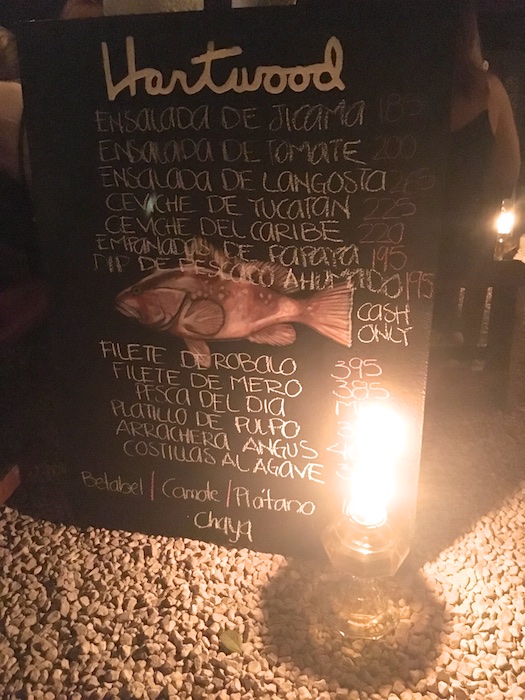 Hartwood
ENSALADA DE JICAMA 185
ENSALADA DE TOMATE 200
ENSALADA DE LANGOSTA
CEVICHE DE TUCATAN 225
CEVICHE DEL CARIBE 220
EMPANADAS DE PAPAYA 195
DIP DE PESCADO AHUMADO 195
CASH
ONLY
FILETE DE ROBALO 395
FILETE DE MERO 385
PESCA DEL DIA
PLATILLO DE PULPO
ARRACHERA ANGUS
COSTILLAS AL AGAVE
Betabel | Camote | Plátano
Chaya